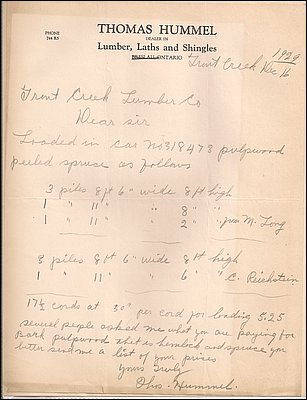 PHONE
744 R5
THOMAS HUMMEL
DEALER IN
Lumber, Laths and Shingles
ONTARIO
Trout Creek Dec 16 1929
Trout Creek Lumber Co
Dear sir
Loaded in car No 318473 pulpwood
peeled spruce as follows
3 piles 8 ft 6" wide 8 ft high
1 " 11" " 8 " "
1 " 11" " 2 " " M. Long
3 piles 8 ft 6" wide 8 ft high
1 " 11" " 6 " C. Reichstein
17½ cords at 30¢ per cord for loading 5.25
several people asked me what you are paying for
Bark pulpwood that is hemlock and spruce you
better send me a list of your prices
Yours Truly
Thos. Hummel.